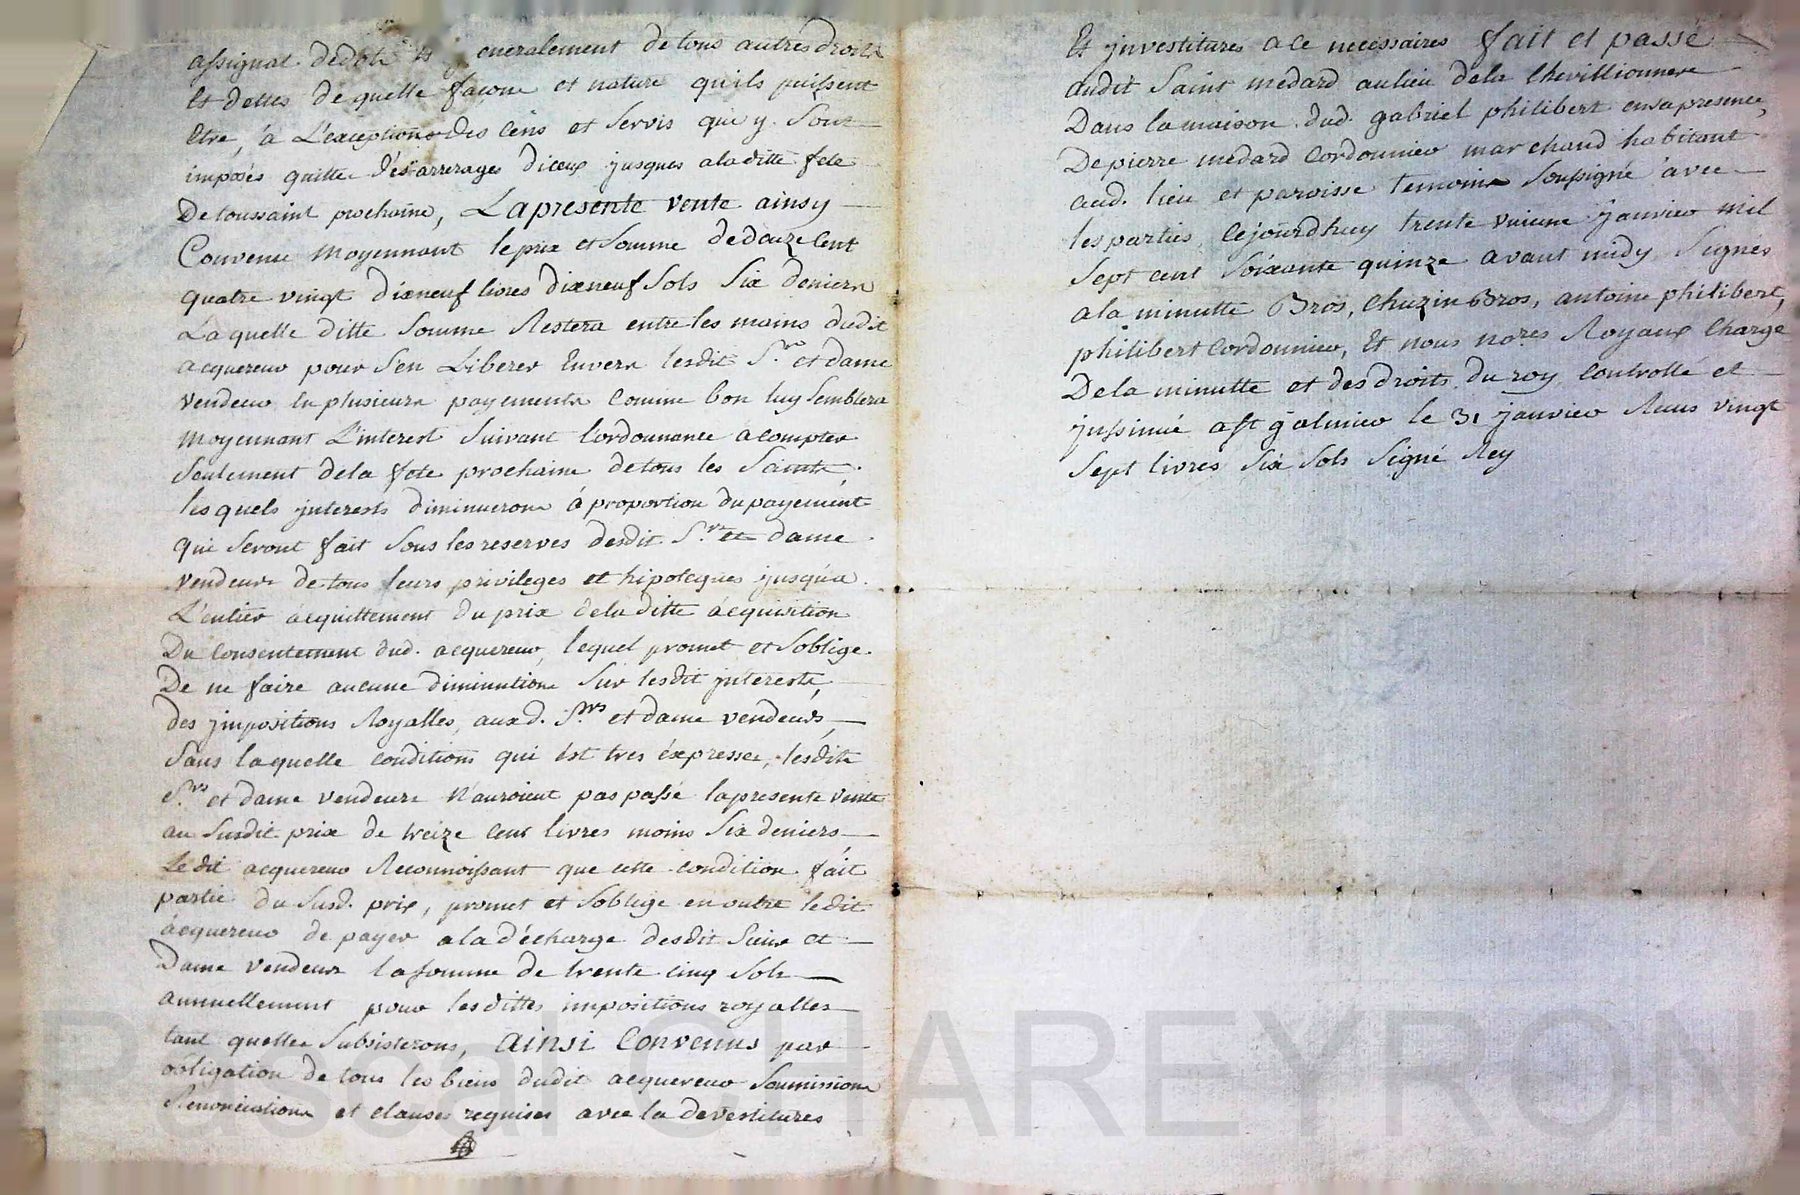 assignat dedot et generalement de tous autres droits
Et dettes de quelle façonn et nature quils puissent
Etre, à L'exceptionn des Cens et Servis qui y Sont
imposés quitte des arrerages diceux jusques a laditte fete
De toussaint prochaine, La presente vente ainsy
Convenu Moyennant le prix et Somme de douze Cent
quatre vingt dixneuf livres dixneuf Sols Six deniers
Laquelle ditte Somme Restera entre les mains dudit
acquereur pour S'en Liberer Envers lesdit S.rs et dame
vendeur En plusieurs payements Comme bon luy Semblera
Moyennant L'interest Suivant l'ordonnance a compter
Seulement de la fete prochaine de tous les Saints.
lesquels jnterests diminueronn à proportion du payement
qui Seront fait Sous les reserves desdit S.rs et dame
vendeurs de tous leurs privileges et hipoteques jusqu'a
L'entier acquittement du prix de la ditte acquisition
Du Consentement dud. acquereur, lequel promet et Soblige
De ne faire aucune diminutionn Sur lesdit jnterests,
des jmpositions Royalles, auxd. S.rs et dame vendeurs,
Sans laquelle conditions qui est tres éxpresse, lesdits
S.rs et dame vendeurs N'auroient pas passé la presente vente
au Susdit prix de treize Cent livres moins Six deniers
Le dit acquereur Reconnoissant que cette condition fait
partie du Susd. prix, promet et Soblige en outre ledit
acquereur de payer a la décharge desdit Sieur et
Dame Vendeur la somme de trente cinq Sols
annuellement pour lesdittes impositions royalles
tant quelles Subsisterons, Ainsi Convenus par
obligation de tous les biens dudit acquereur Soumissionn
Renonciationn et clauses requises avec la devestitures
Et jnvestitures a ce necessaires fait et passé
audit Saint medard au lieu de la Chevillionnere
Dans la maison dud. gabriel philibert en sa presence,
De pierre medard Cordonnier marchand habitant
aud. lieu et paroisse temoins Soussigné avec
les parties, cejourdhuy trente unieme janvier mil
Sept cent Soixante quinze avant midy Signés
a la minutte Bros, Chuzin Bros, antoine philibert,
philibert Cordonnier, Et nous no.res Royaux Chargé
De la minutte et des droits du roy Controllé et
jnssinué a St galmier le 31 janvier Recus vingt
Sept livres Six Sols Signé Rey
Pascal CHAREYRON